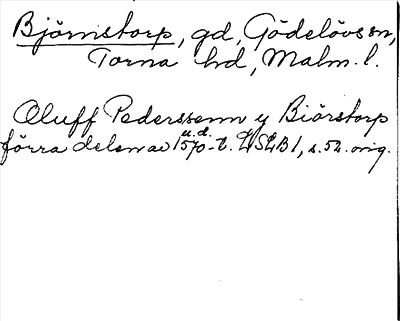 Björnstorp, gd, Gödelövs sn,
Torna hd, Malm. l.
Oluff Pederssenn y Biörstorp
u.d.
förra delen av 1570-t. LSLB 1, s. 52. orig.